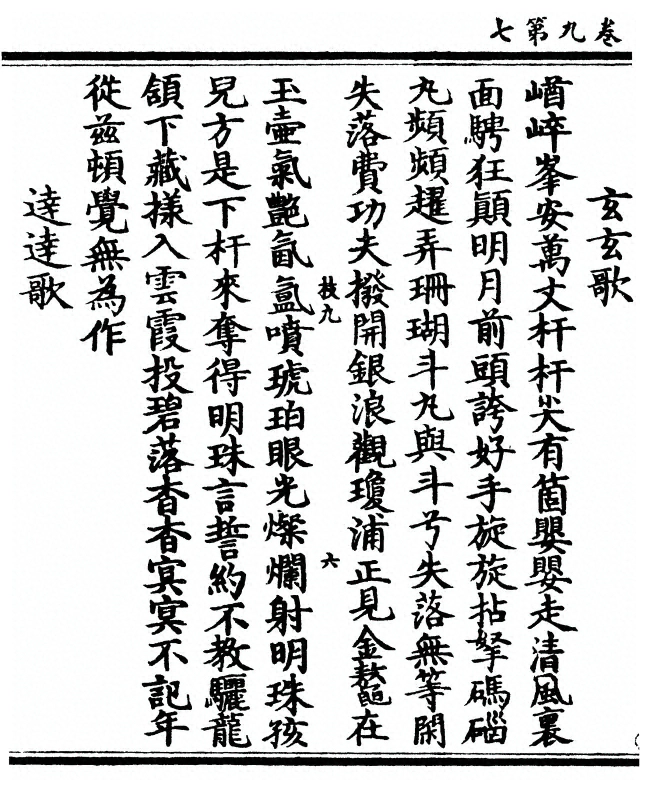 卷九第七
玄玄歌
崷崪峯安萬丈杆杆尖有箇嬰嬰走清風裏
面騁狂顛明月前頭誇好手旋旋拈拏碼碯
丸頻頻趯弄珊瑚斗丸與斗兮失落無等閑
失落費功夫撥開銀浪觀瓊浦正見金鼇在
枝九 六
玉壺氣艷氤氳噴琥珀眼光燦爛射明珠孩
兒方是下杆來奪得明珠言誓約不教驪龍
頷下藏樣入雲霞投碧落杳杳㝠㝠不記年
從兹頓覺無為作
逹逹歌